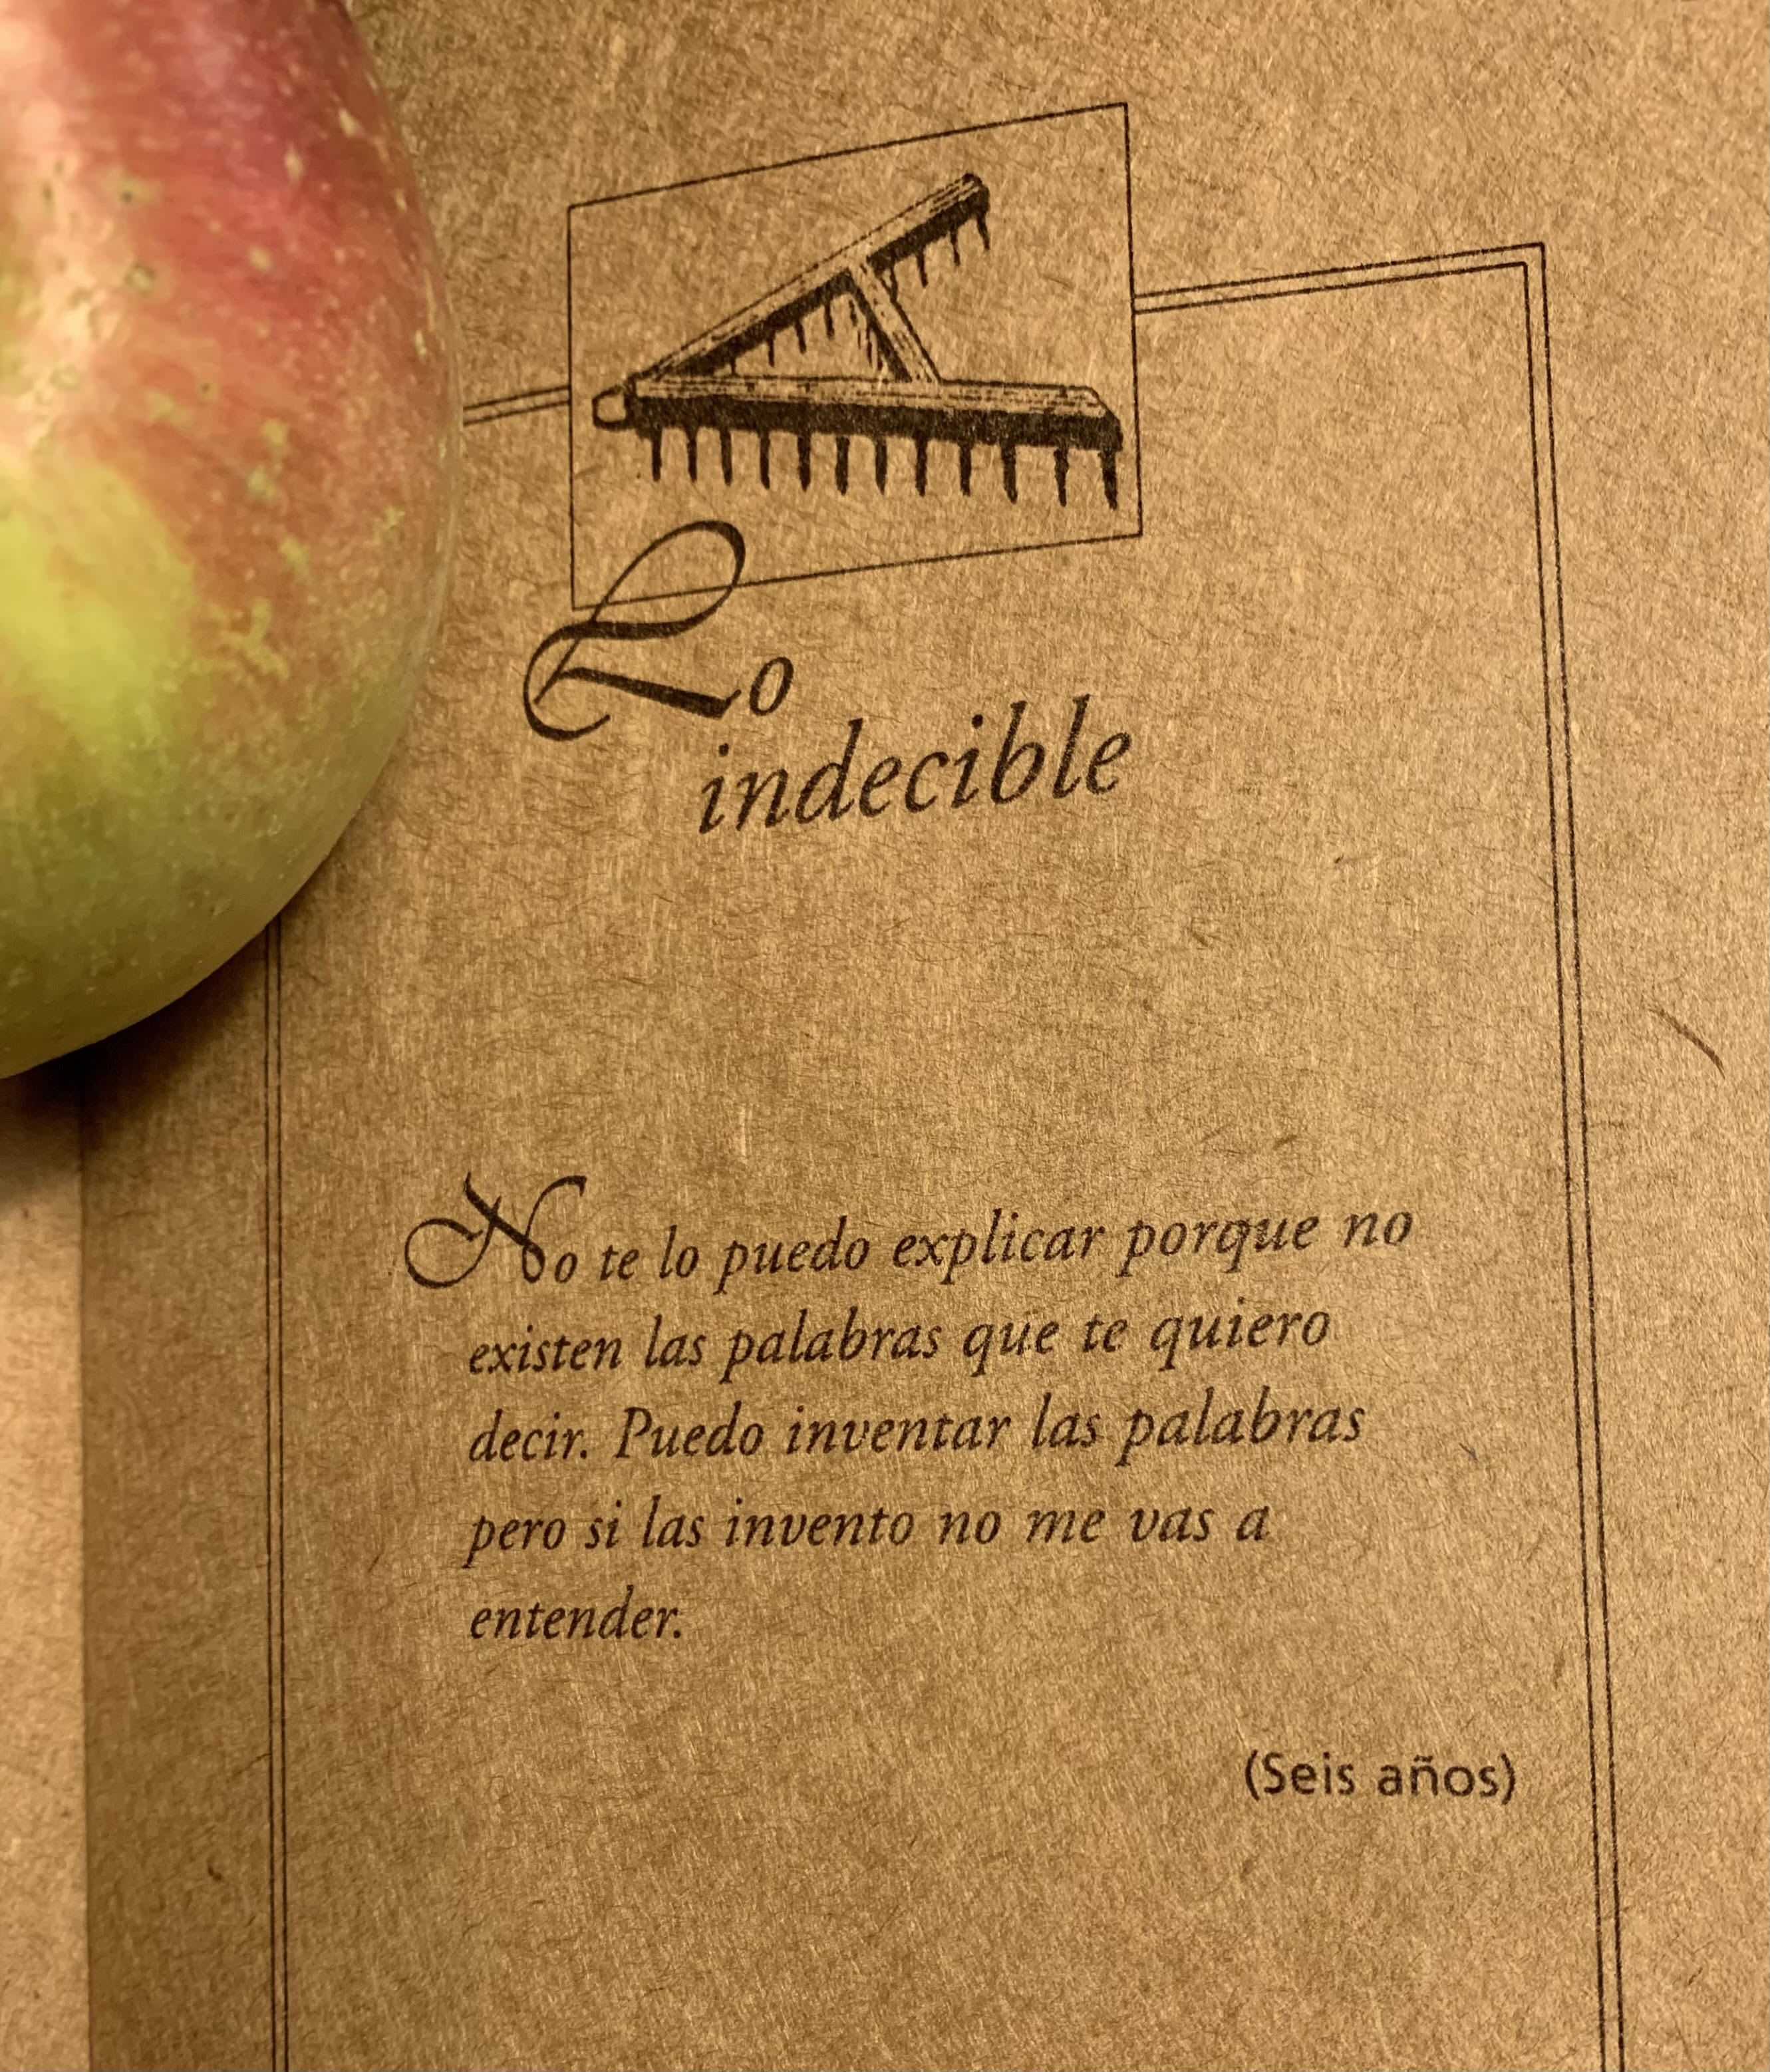 Lo
indecible
No te lo puedo explicar porque no
existen las palabras que te quiero
decir. Puedo inventar las palabras
pero si las invento no me vas a
entender.
(Seis años)